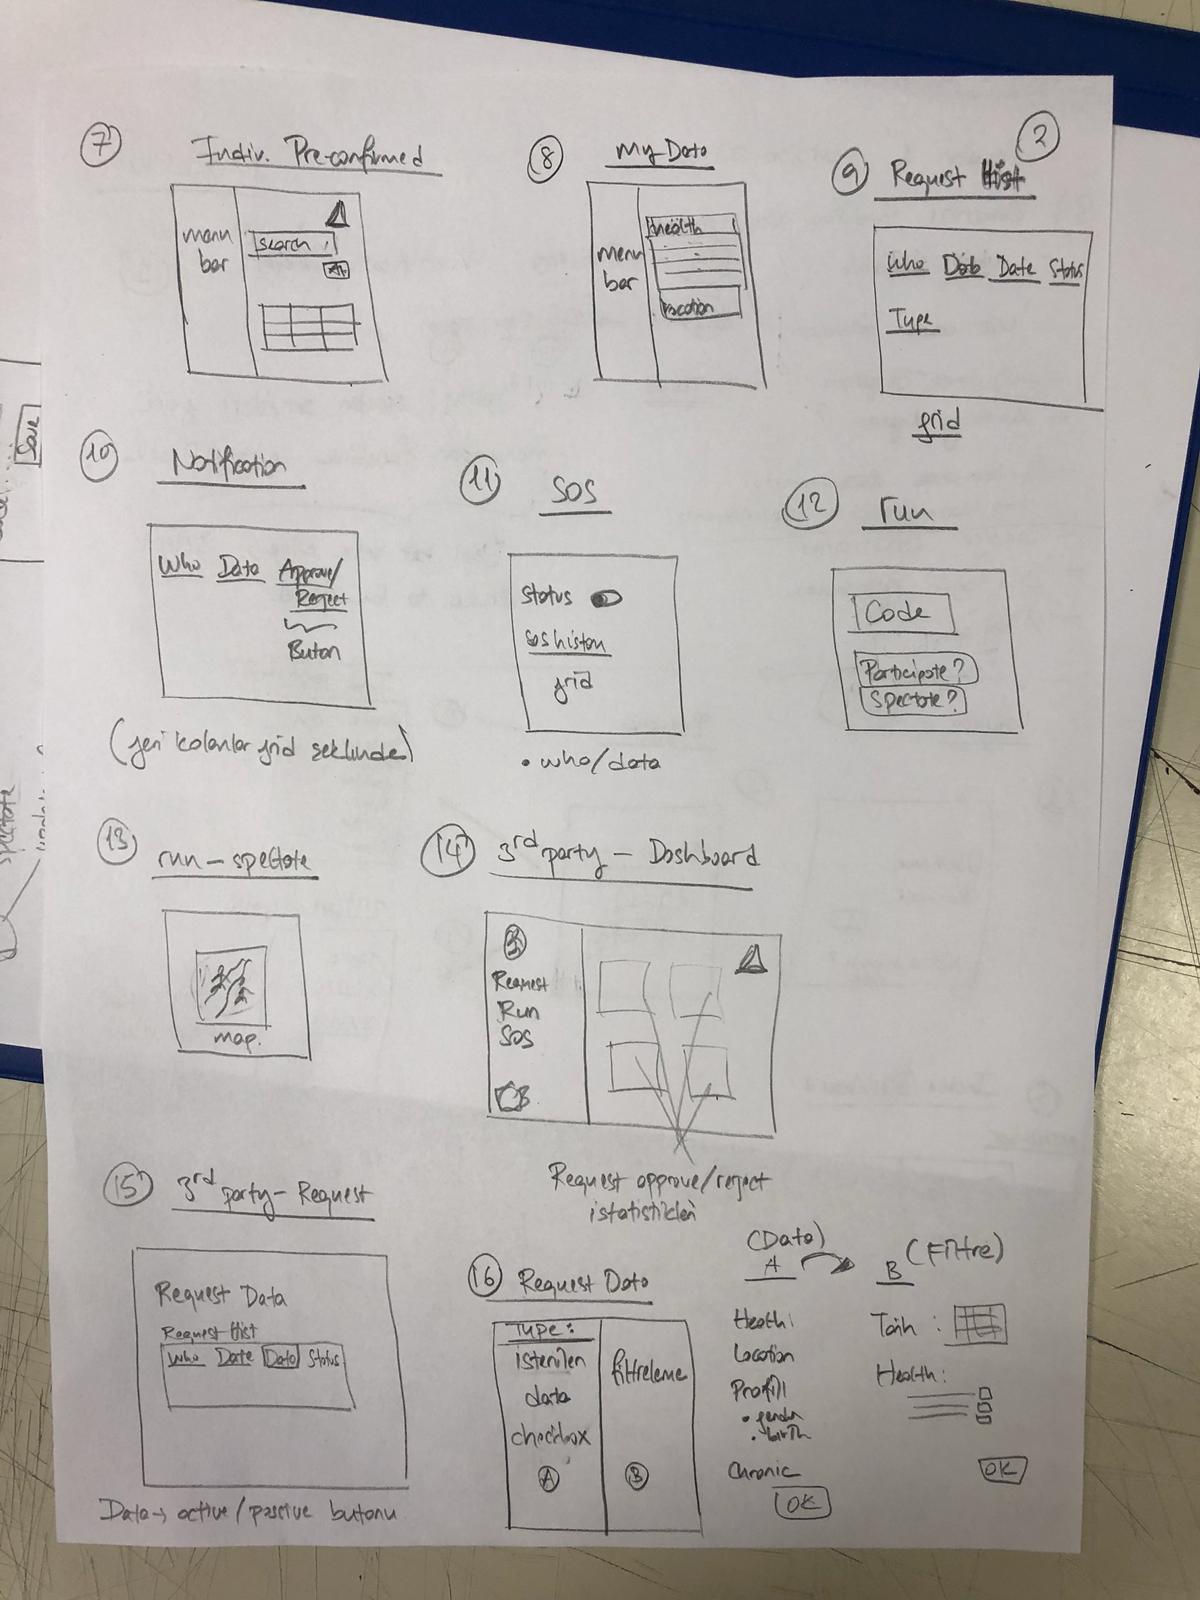 2
7
Indiv. Pre-confirmed
menu
bar
search
8
My Data
menu
bar
health
location
9
Request Hist
Who Data Date Status
Type
grid
10
Notification
Who Data Approve/
Reject
Buton
(yeni kolonlar grid seklinde)
11
SOS
status
sos history
grid
• who/data
12
run
Code
Participate?
Spectate?
13
run - spectate
map.
14
3rd party - Dashboard
Request
Run
SOS
Request approve/reject
istatistikleri
15
3rd party - Request
Request Data
Request Hist
Who Date Data Status
Data → active/passive butonu
16
Request Data
Type:
istenilen
data
checkbox
A
filtreleme
B
(Data)
A
Health:
Location
Profill
• gender
• birth
Chronic
OK
(Filtre)
B
Tarih :
Health:
OK
Save
spectate